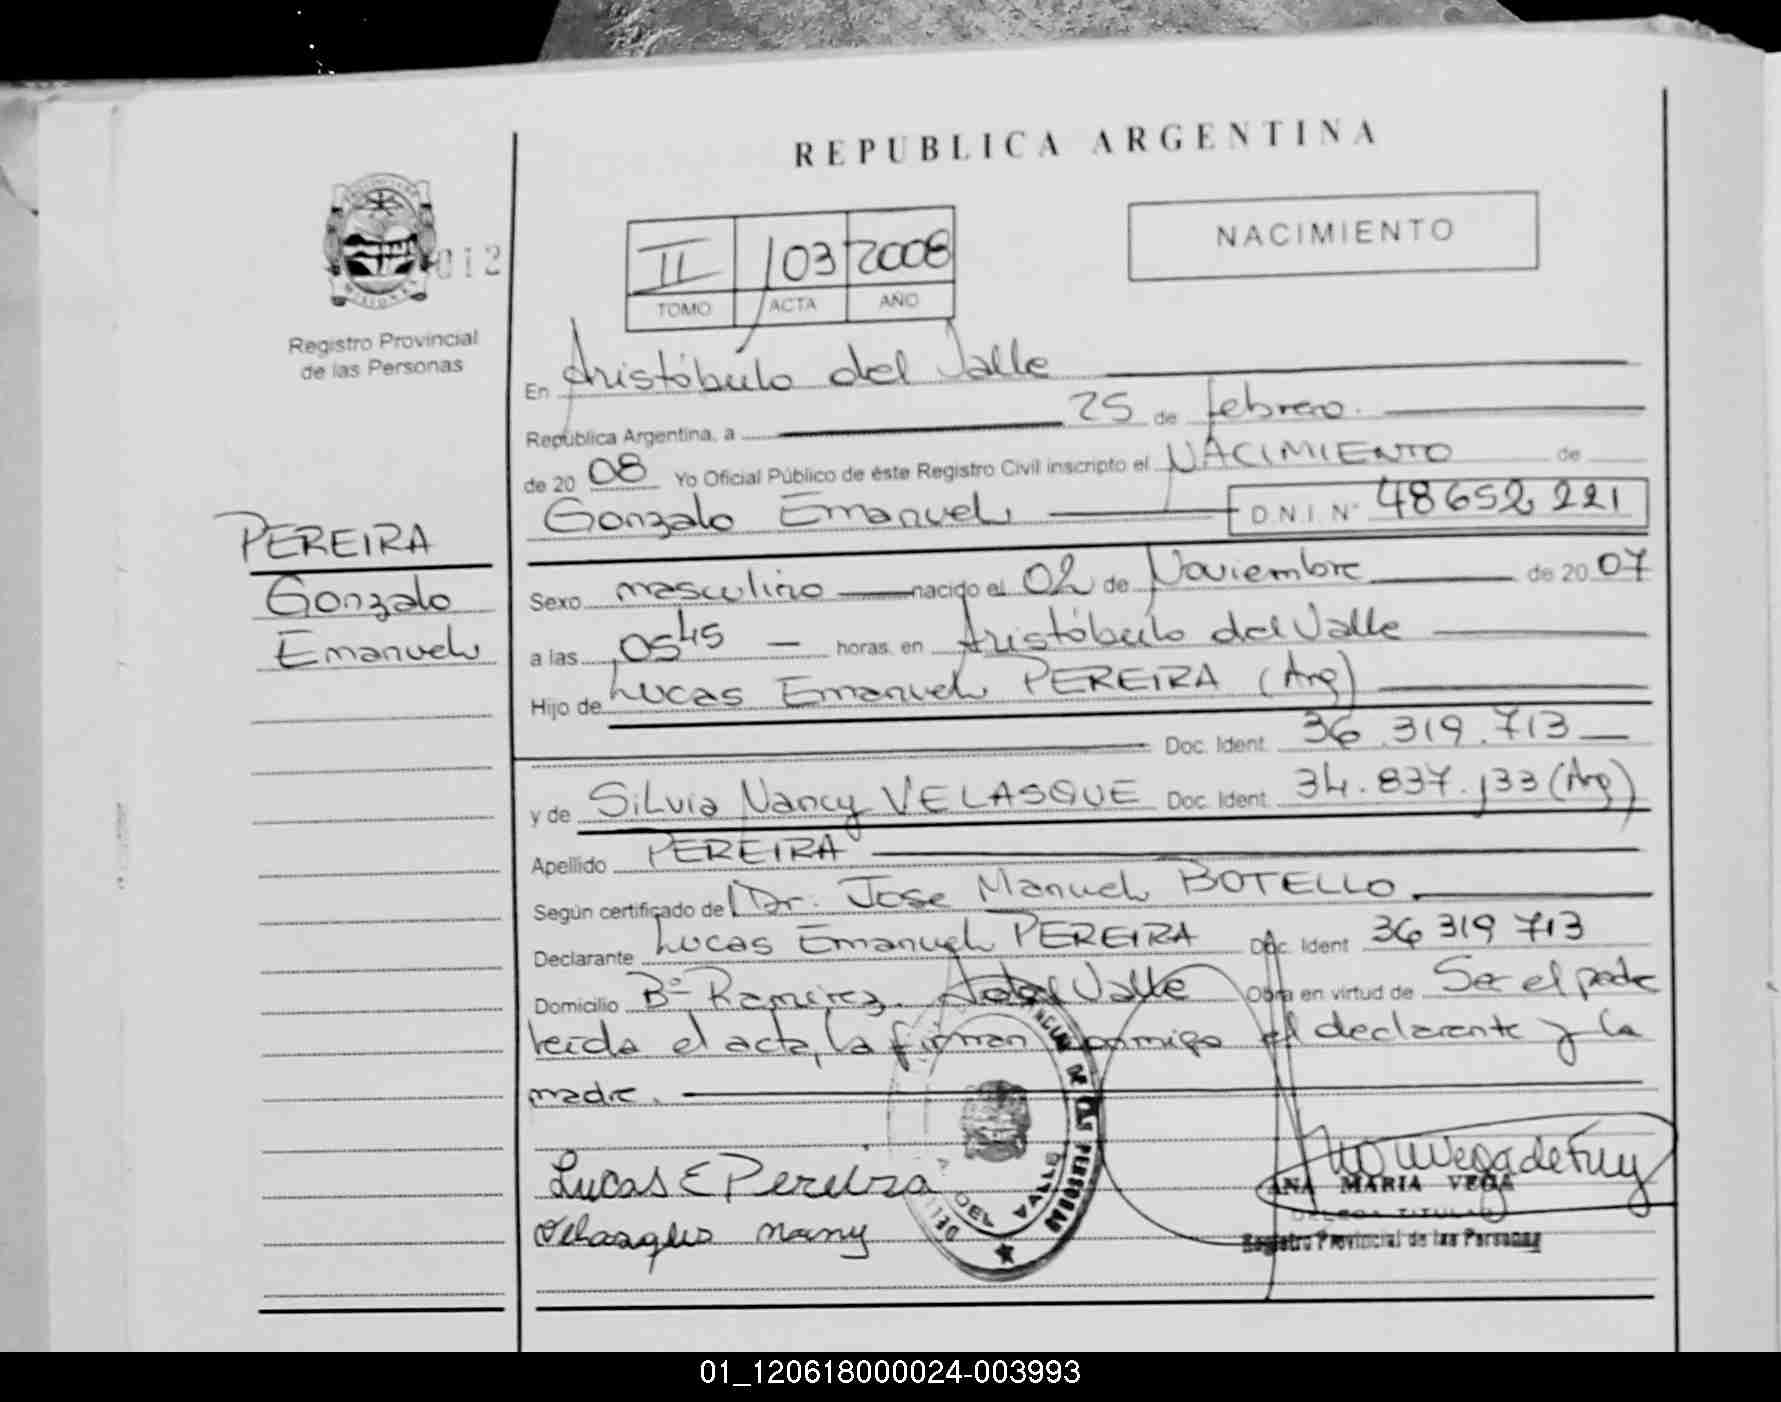 REPUBLICA ARGENTINA
NACIMIENTO
MISIONES
012
Registro Provincial
de las Personas
II 103 2008
TOMO ACTA AÑO
En Aristóbulo del Valle
República Argentina, a 25 de febrero.
de 20 08 Yo Oficial Público de éste Registro Civil inscripto el NACIMIENTO de
Gonzalo Emanuel D.N.I. N° 48652221
PEREIRA
Gonzalo
Emanuel
Sexo masculino nacido el 02 de Noviembre de 20 07
a las 05 45 horas. en Aristóbulo del Valle
Hijo de Lucas Emanuel PEREIRA (Arg)
Doc. Ident. 36.319.713
y de Silvia Nancy VELASQUE Doc. Ident. 34.837.133 (Arg)
Apellido PEREIRA
Según certificado de Dr. Jose Manuel BOTELLO.
Declarante Lucas Emanuel PEREIRA Doc. Ident 36 319 713
Domicilio Bº Ramirez. Valle Obra en virtud de Ser el padre
leida el acta, la firman conmigo el declarante y la
madre.
Lucas E Pereira
DE LAS PERSONAS
DEL VALLE
ANA MARIA VEGA
Registro Provincial de las Personas
01_120618000024-003993